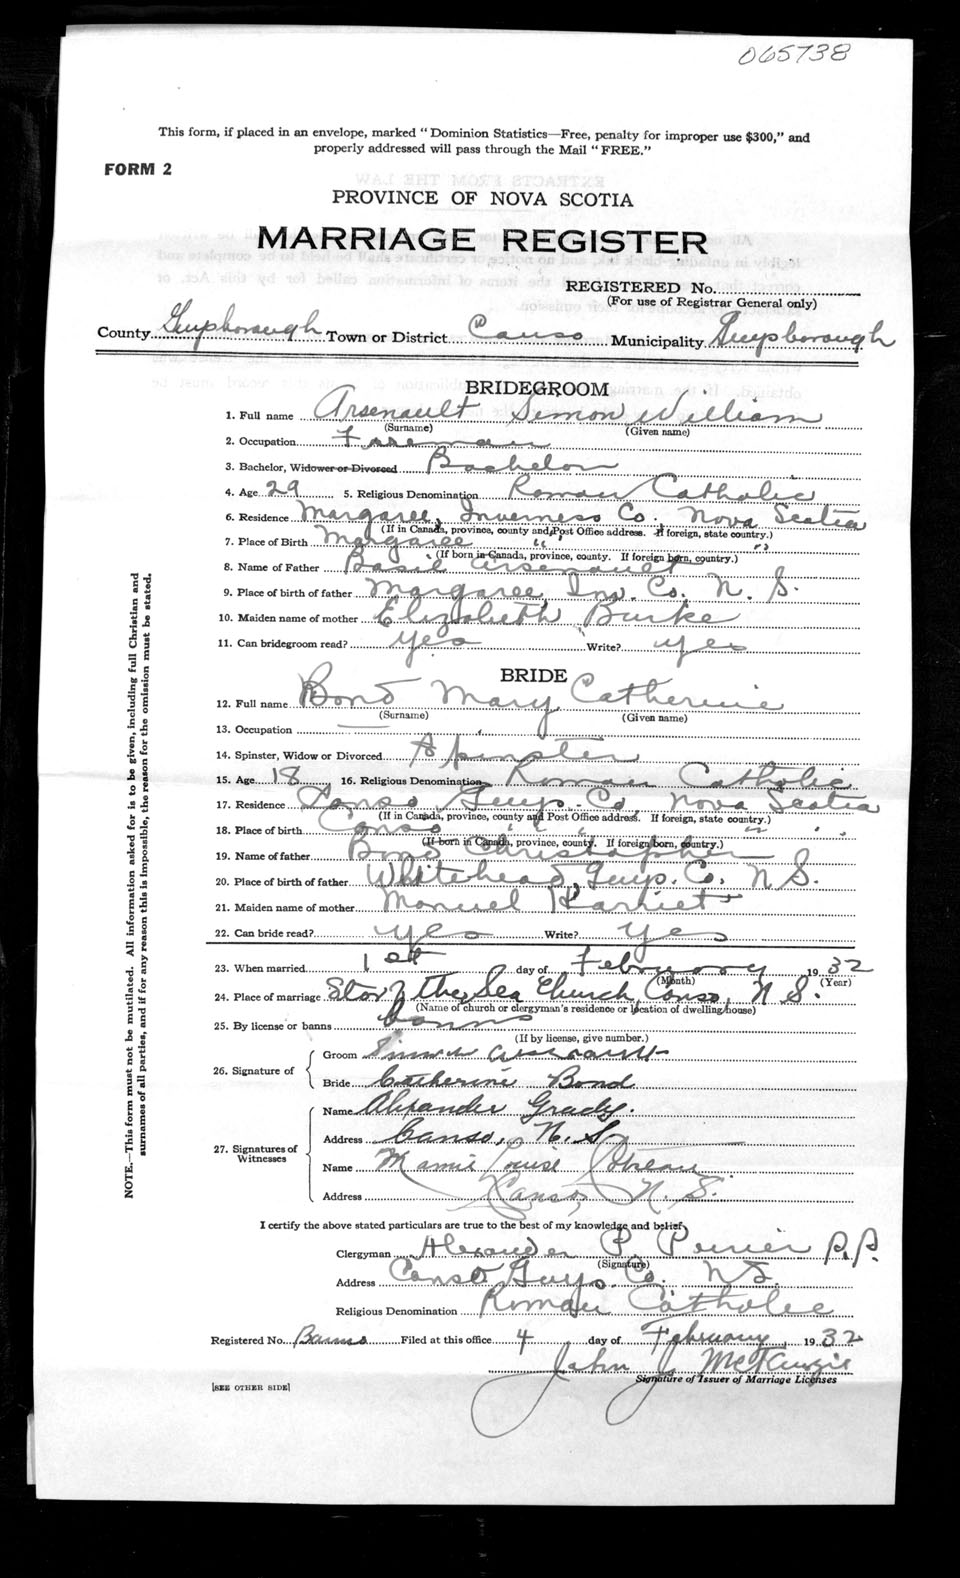 065738
This form, if placed in an envelope, marked "Dominion Statistics—Free, penalty for improper use $300," and
properly addressed will pass through the Mail "FREE."
FORM 2
PROVINCE OF NOVA SCOTIA
MARRIAGE REGISTER
REGISTERED No.
(For use of Registrar General only)
County Guysborough Town or District Canso Municipality Guysborough
BRIDEGROOM
1. Full name Arsenault Simon William
(Surname) (Given name)
2. Occupation
3. Bachelor, Widower or Divorced Bachelor
4. Age 29 5. Religious Denomination Roman Catholic
6. Residence Margaree, Inverness Co., Nova Scotia
(If in Canada, province, county and Post Office address. If foreign, state country.)
7. Place of Birth Margaree " "
(If born in Canada, province, county. If foreign born, country.)
8. Name of Father Basil Arsenault
9. Place of birth of father Margaree, Inv. Co., N. S.
10. Maiden name of mother Elizabeth Burke
11. Can bridegroom read? yes Write? yes
BRIDE
12. Full name Bond Mary Catherine
(Surname) (Given name)
13. Occupation —
14. Spinster, Widow or Divorced Spinster
15. Age 18 16. Religious Denomination Roman Catholic
17. Residence Canso Guys. Co. Nova Scotia
(If in Canada, province, county and Post Office address. If foreign, state country.)
18. Place of birth Canso " " " "
(If born in Canada, province, county. If foreign born, country.)
19. Name of father Bond Christopher
20. Place of birth of father Whitehead, Guys. Co., N S.
21. Maiden name of mother Manuel Harriet
22. Can bride read? yes Write? yes
23. When married 1st day of February 1932
(Month) (Year)
24. Place of marriage Star of the Sea Church, Canso, N S.
(Name of church or clergyman's residence or location of dwelling house)
25. By license or banns banns
(If by license, give number.)
26. Signature of Groom Simon Arsenault
Bride Catherine Bond
27. Signatures of Witnesses Name Alexander Grady.
Address Canso, N. S.
Name Mamie Louise
Address Canso, N. S.
I certify the above stated particulars are true to the best of my knowledge and belief,
Clergyman Alexander P. Poirier P.P.
(Signature)
Address Canso Guys. Co. NS.
Religious Denomination Roman Catholic
Registered No. Banns Filed at this office 4 day of February, 1932
John J McKenzie
Signature of Issuer of Marriage Licenses
[SEE OTHER SIDE]
NOTE.—This form must not be mutilated. All information asked for is to be given, including full Christian and
surnames of all parties, and if for any reason this is impossible, the reason for the omission must be stated.